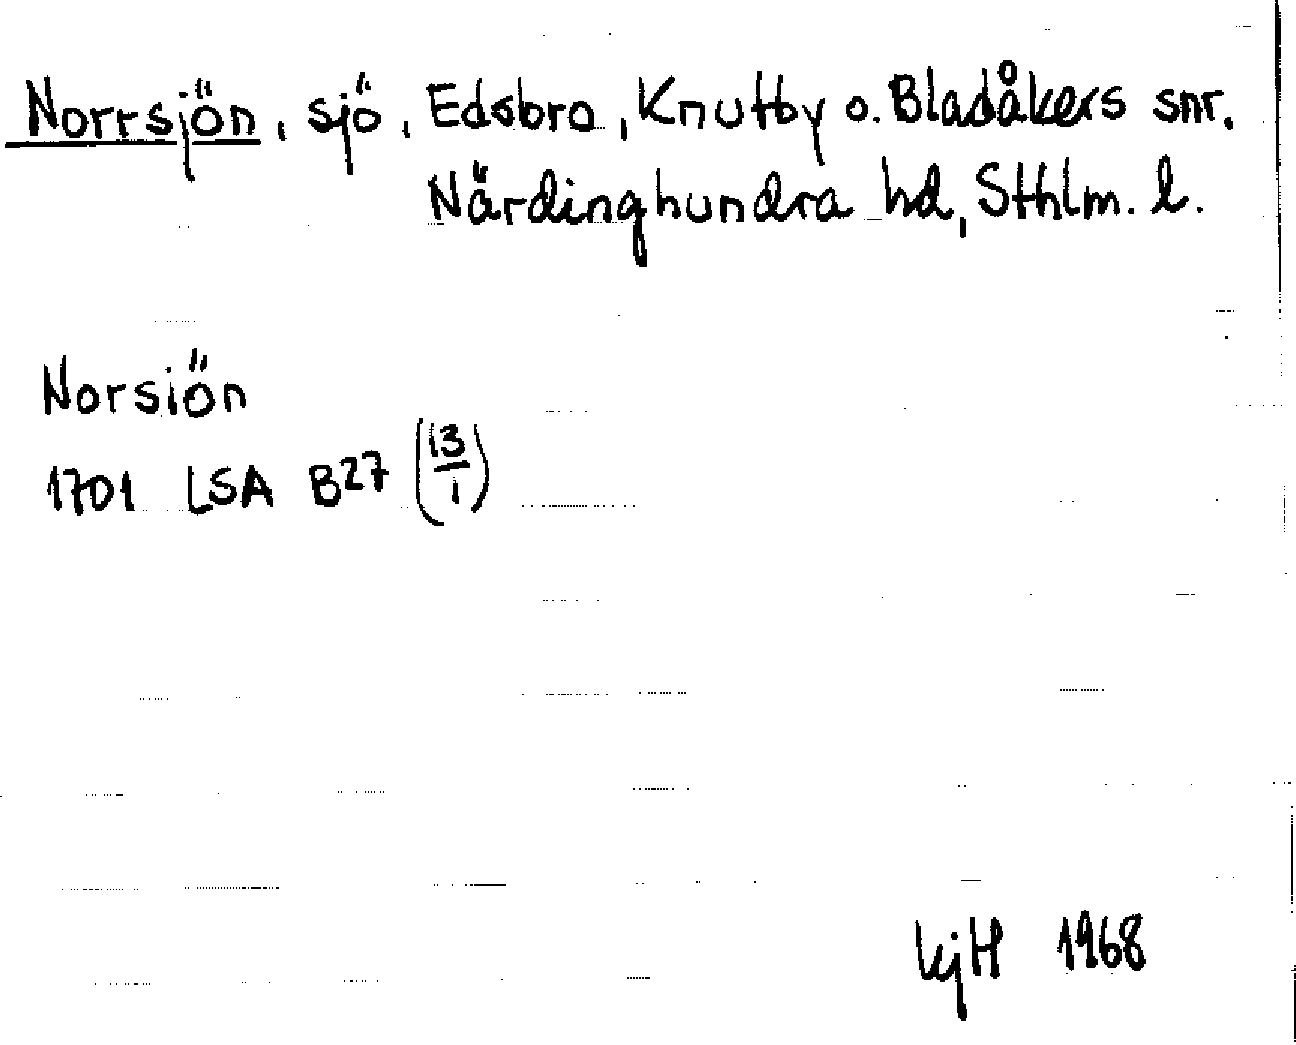 Norrsjön, sjö, Edsbro, Knutby o. Bladåkers snr.
Närdinghundra hd, Sthlm. l.
Norsiön
1701 LSA B27 (13/1)
kjH 1968